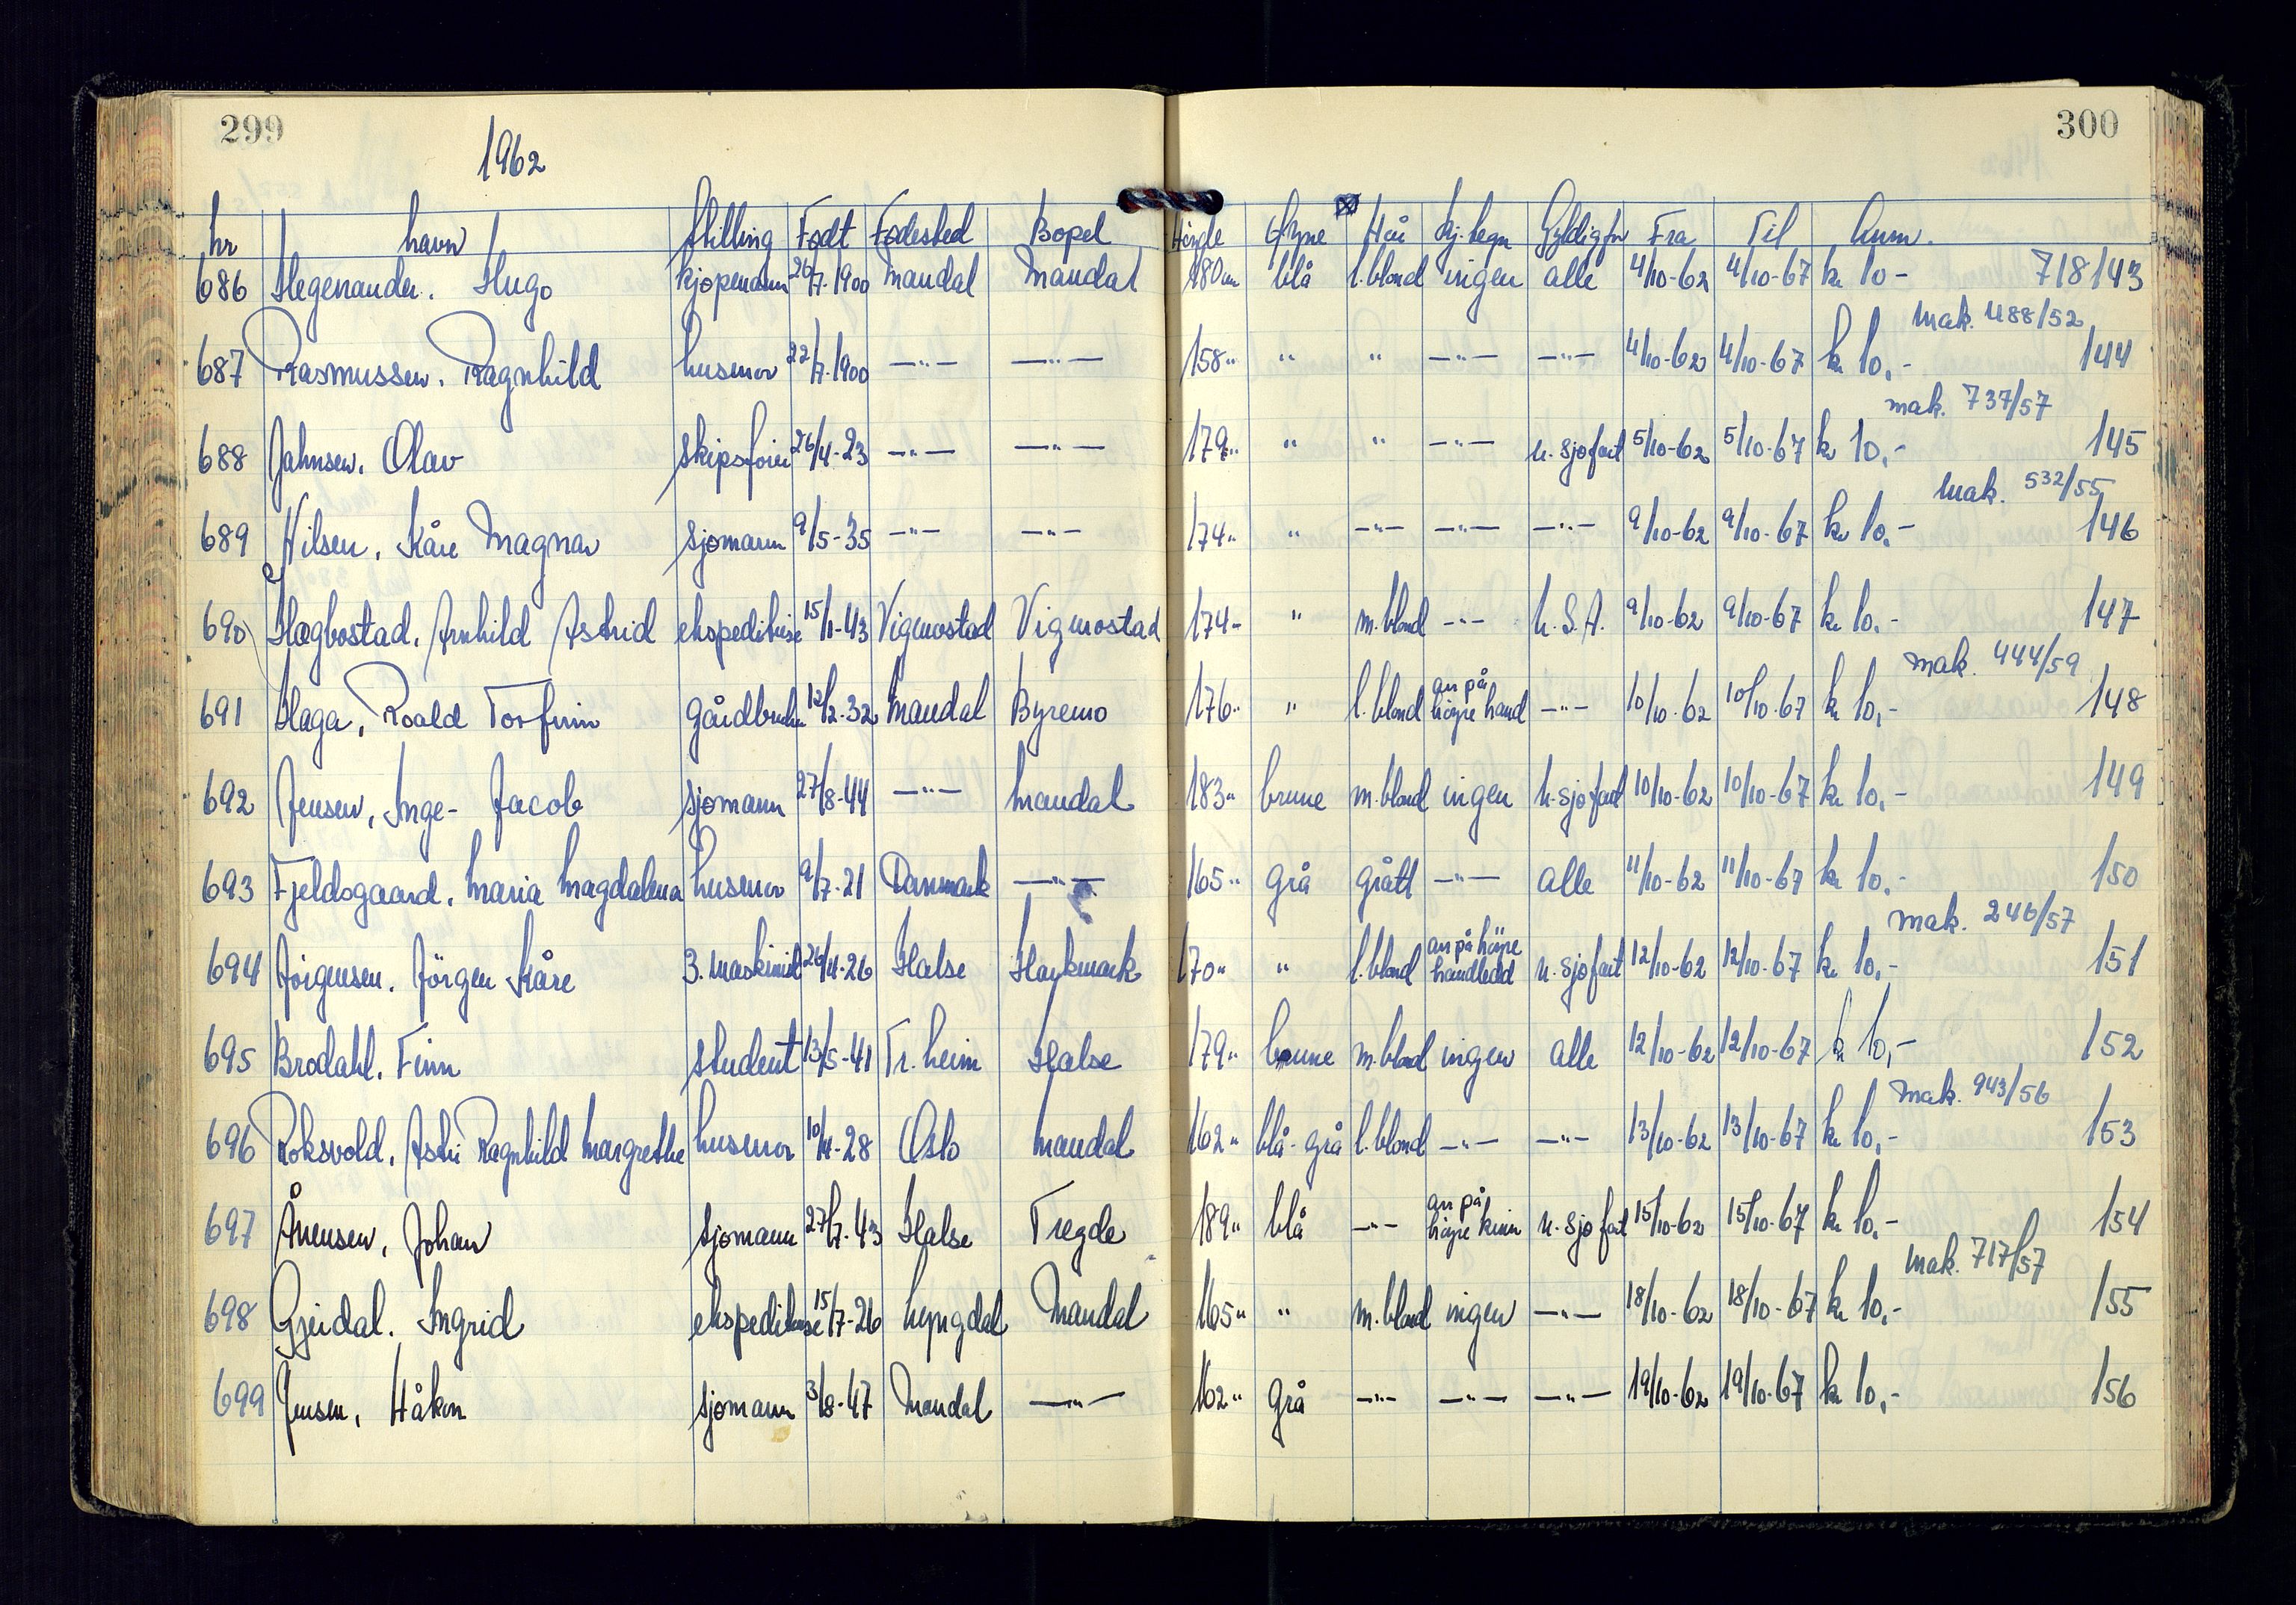 299
300
1962
Nr Navn Stilling Født Fødested Bopel Höyde Öyne Hår Kj.tegn Gyldig for Fra Til Anm.
686 Hegenander. Hugo kjøpmann 26/7-1900 Mandal Mandal 180 cm blå l.blond ingen alle 4/10-62 4/10-67 kr 10- 718143
mak. 488/52
687 Rasmussen. Ragnhild husmor 22/7-1900 —"— —"— 158" " " —"— —"— 4/10-62 4/10-67 kr 10,- 144
mak. 737/57
688 Jahnsen. Olav skipsfører 26/4-23 —"— —"— 179" " " —"— u.sjøfart 5/10-62 5/10-67 kr 10,- 145
mak. 532/55
689 Nilsen, Kåre Magnar sjømann 9/5-35 —"— —"— 174" " —"— —"— —"— 9/10-62 9/10-67 kr 10,- 146
690 Hægbostad, Arnhild Astrid ekspeditrise 15/1-43 Vigmostad Vigmostad 174" " m.blond —"— U.S.A. 9/10-62 9/10-67 kr 10,- 147
mak. 444/59
691 Haga, Roald Torfinn gårdbruker 12/2-32 Mandal Byremo 176" " l.blond arr på höyre hånd —"— 10/10-62 10/10-67 kr 10,- 148
692 Jensen, Inge-Jacob sjømann 27/8-44 —"— Mandal 183" brune m.blond ingen u.sjøfart 10/10-62 10/10-67 kr 10,- 149
693 Fjeldsgaard, Maria Magdalena husmor 9/7-21 Danmark —"— 165" grå grått —"— alle 11/10-62 11/10-67 kr 10,- 150
mak. 246/57
694 Jörgensen. Jörgen Kåre 3. maskinist 26/4-26 Halse Haykmark 170" " l.blond arr på höyre håndledd u.sjøfart 12/10-62 12/10-67 kr 10,- 151
695 Brodahl. Finn student 13/5-41 Tr.heim Halse 179" brune m.blond ingen alle 12/10-62 12/10-67 kr 10,- 152
mak. 943/56
696 Roksvold, Astri Ragnhild Margrethe husmor 10/4-28 Oslo Mandal 162" blå-grå l.blond —"— —"— 13/10-62 13/10-67 kr 10,- 153
697 Ånensen, Johan sjømann 27/7-43 Halse Tregde 189" blå —"— arr på höyre kinn u.sjøfart 15/10-62 15/10-67 kr 10,- 154
mak. 717/57
698 Gjerdal. Ingrid ekspeditrise 15/7-26 Lyngdal Mandal 165" " m.blond ingen —"— 18/10-62 18/10-67 kr 10,- 155
699 Jensen, Håkon sjømann 3/8-47 Mandal —"— 162" grå —"— —"— —"— 19/10-62 19/10-67 kr 10,- 156